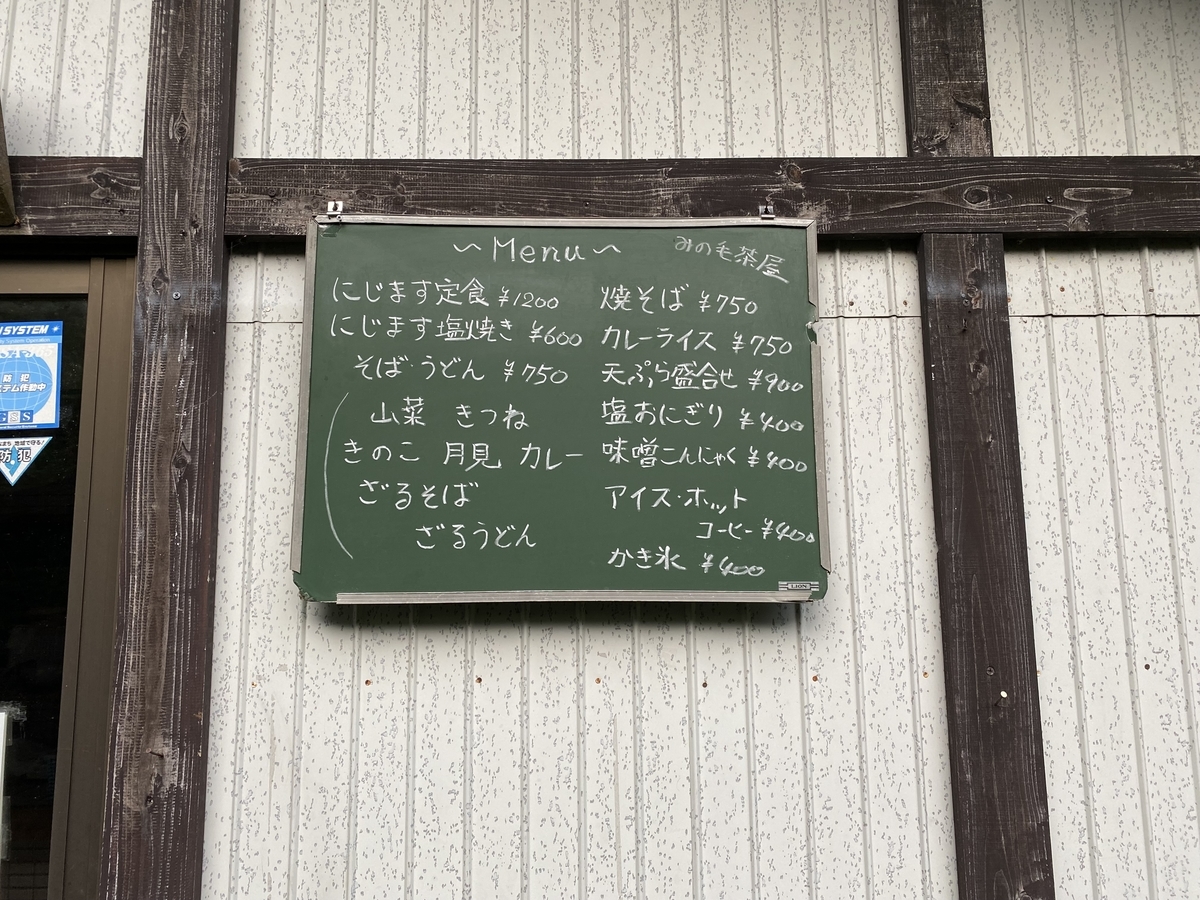 ~Menu~
みの毛茶屋
にじます定食 ¥1200
にじます塩焼き ¥600
そば・うどん ¥750
山菜 きつね
きのこ 月見 カレー
ざるそば
ざるうどん
焼そば ¥750
カレーライス ¥750
天ぷら盛合せ ¥900
塩おにぎり ¥400
味噌こんにゃく ¥400
アイス・ホット
コーヒー ¥400
かき氷 ¥400
LION
SYSTEM
防犯
ステム作動中
防犯